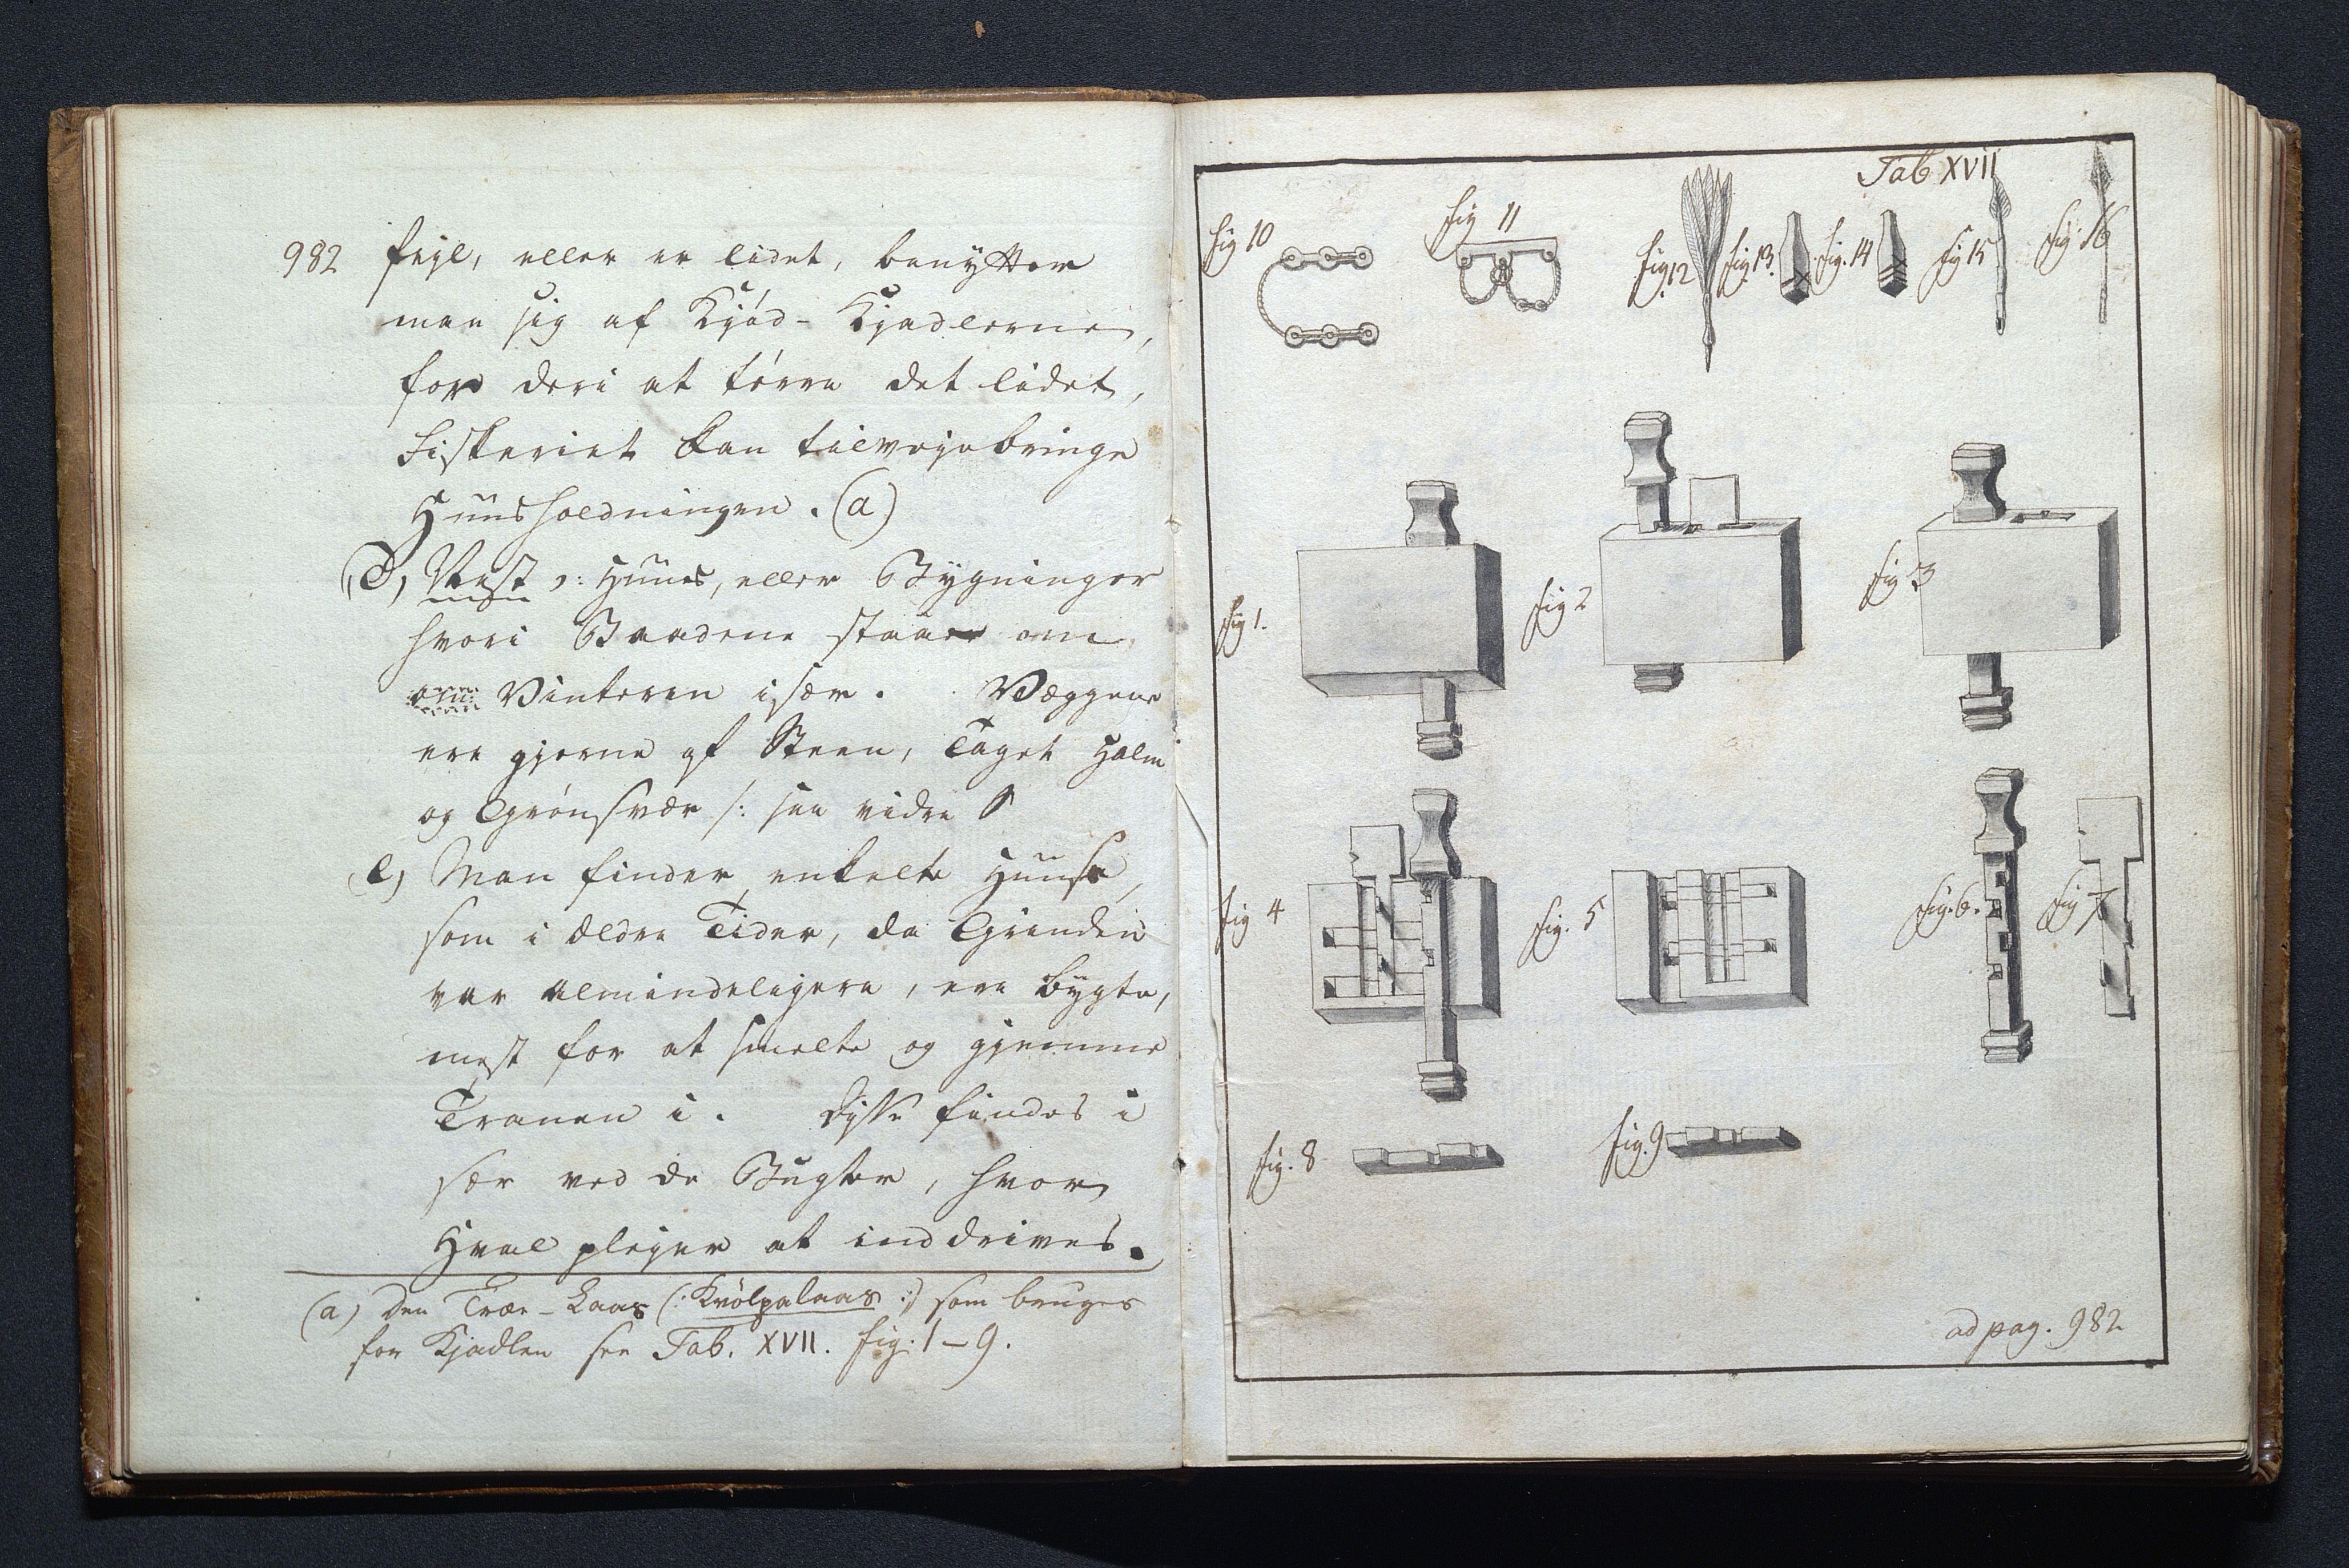 982 fejl, eller er lidet, benytter
man sig af Kjød-Kjadlerne,
for deri at tørre det lidet,
Fiskeriet kan tilvejebringe
Huusholdningen. (a)
(d) Neust ɔ: Huus, eller Bygninger
hvori Baadene staae om
om Vinteren især. Væggene
ere gjerne af Steen, Taget Halm
og Grønsvær /: see vidre §
(e) Man finder enkelte Huuse,
som i ældre Tider, da Grinden
var almindeligere, ere bygte,
mest for at smelte og gjemme
Tranen i. Disse findes i
sær ved de Bugter, hvor
Hval plejer at inddrives.
(a) Den Træe-Laas (: Kvólpalaas :) som bruges
for Kjadlen see Tab. XVII. fig: 1-9.
Tab XVII
fig 10
fig 11
fig. 12
fig. 13.
fig. 14
fig 15
fig. 16
fig 1.
fig 2
fig 3
fig 4
fig. 5
fig. 6.
fig 7
fig. 8
fig. 9
ad pag. 982